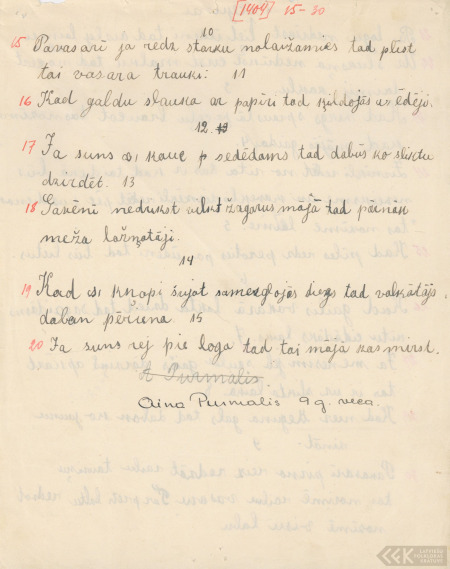 [1404] 15-20
10
15 Pavasarī ja redz stārķu nolaižamies tad plīst
tai vasarā trauki. 11
16 Kad galdu slauka ar papīri tad ķildojās ēdēji.
12. 13
17 Ja suns kauc sēdēdams tad dabūs ko sliktu
dzirdēt. 13
18 Gavēnī nedrīkst vilkt žagarus mājā tad pānāk
meža ložņotāji.
14
19 Kad knopi šujot samezglojās diegs tad valkātājs
dabān pēriena 15
20 Ja suns rej pie loga tad tai mājā kas mirst.
A Purmalis
Aina Purmalis 9 g. veca.
LATVIEŠU
FOLKLORAS
KRĀTUVE